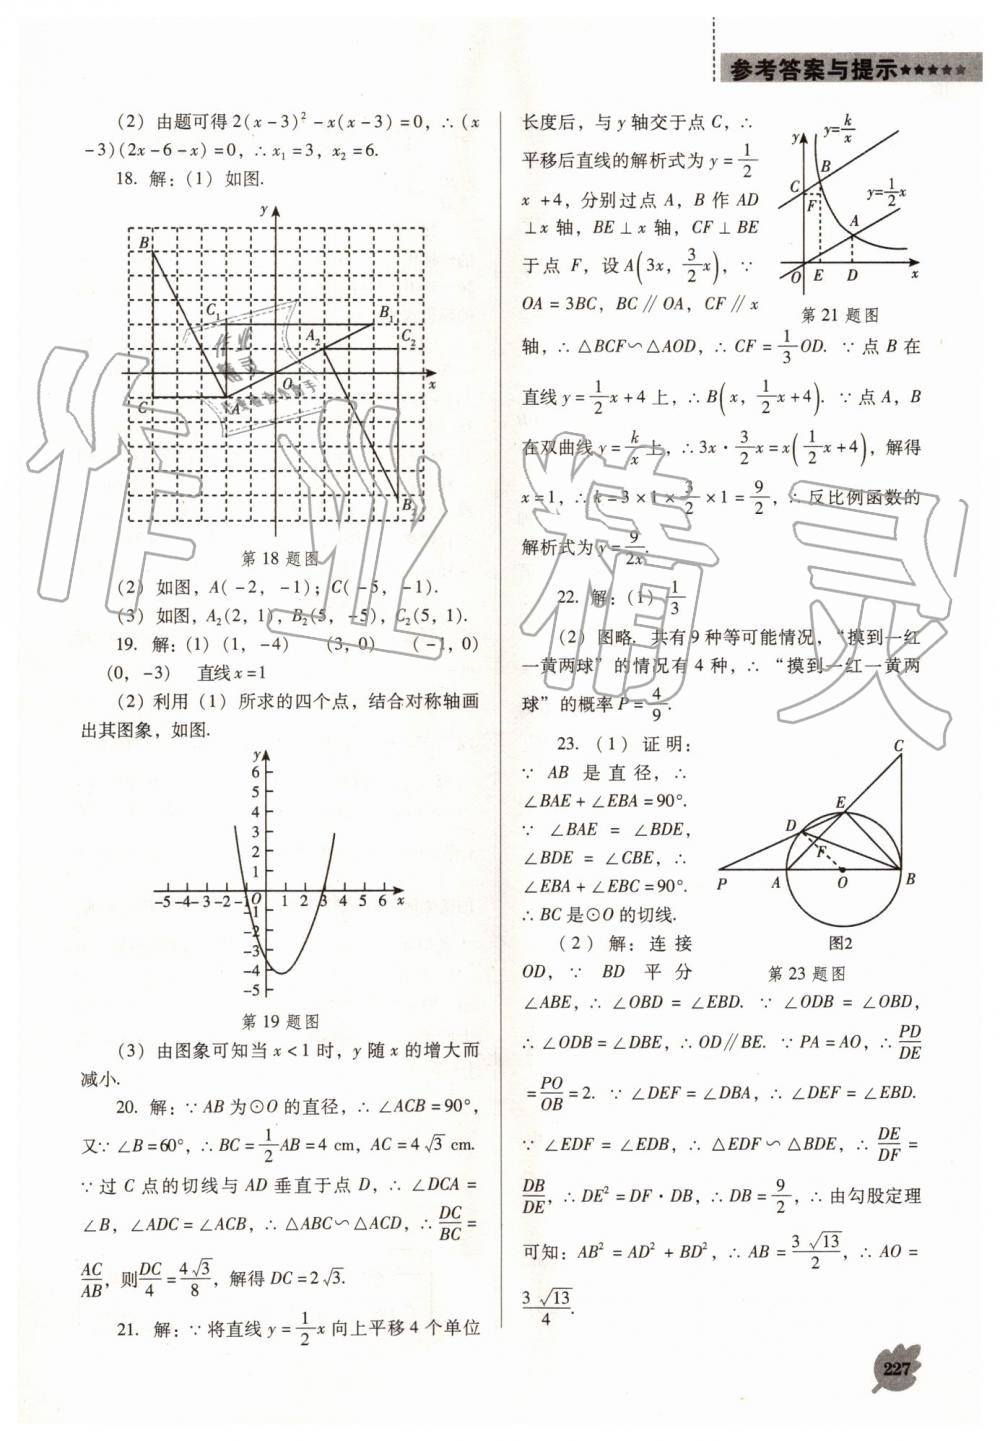 参考答案与提示★★★★★
(2) 由题可得 2(x-3)²-x(x-3)=0,∴(x
-3)(2x-6-x)=0,∴x₁=3, x₂=6.
18. 解:(1) 如图.
y
B
C₁
B₁
A₂
C₂
O
x
C
A
B₂
第18题图
(2) 如图, A(-2, -1); C(-5, -1).
(3) 如图, A₂(2, 1), B₂(5, -5), C₂(5, 1).
19. 解:(1) (1, -4) (3, 0) (-1, 0)
(0, -3) 直线x=1
(2) 利用 (1) 所求的四个点, 结合对称轴画
出其图象, 如图.
y
6
5
4
3
2
1
-5 -4 -3 -2 -1 O 1 2 3 4 5 6 x
-1
-2
-3
-4
-5
第19题图
(3) 由图象可知当 x<1 时, y 随 x 的增大而
减小.
20. 解:∵AB 为⊙O 的直径,∴∠ACB=90°,
又∵∠B=60°,∴BC=1/2AB=4 cm, AC=4√3 cm.
∵过 C 点的切线与 AD 垂直于点 D,∴∠DCA=
∠B, ∠ADC=∠ACB,∴△ABC∽△ACD,∴DC/BC=
AC/AB, 则DC/4=4√3/8, 解得 DC=2√3.
21. 解:∵将直线 y=1/2x 向上平移 4 个单位
长度后, 与 y 轴交于点 C,∴
平移后直线的解析式为 y=1/2
x+4, 分别过点 A, B 作 AD
⊥x 轴, BE⊥x 轴, CF⊥BE
于点 F, 设 A(3x, 3/2x),∵
OA=3BC, BC∥OA, CF∥x
y
y=k/x
B
C
F
y=1/2x
A
O
E
D
x
第21题图
轴,∴△BCF∽△AOD,∴CF=1/3OD. ∵点 B 在
直线 y=1/2x+4 上,∴B(x, 1/2x+4). ∵点 A, B
在双曲线 y=k/x上,∴3x·3/2x=x(1/2x+4), 解得
x=1,∴k=3×1×3/2×1=9/2,∴反比例函数的
解析式为 y=9/2x.
22. 解:(1) 1/3
(2) 图略. 共有 9 种等可能情况, “摸到一红
一黄两球”的情况有 4 种,∴“摸到一红一黄两
球”的概率 P=4/9.
23. (1) 证明:
∵AB 是直径,∴
∠BAE+∠EBA=90°.
∵∠BAE=∠BDE,
∠BDE=∠CBE,∴
∠EBA+∠EBC=90°.
∴BC是⊙O的切线.
(2) 解: 连接
OD,∵BD 平分
C
E
D
F
P
A
O
B
图2
第23题图
∠ABE,∴∠OBD=∠EBD. ∵∠ODB=∠OBD,
∴∠ODB=∠DBE,∴OD∥BE. ∵PA=AO,∴PD/DE
=PO/OB=2. ∵∠DEF=∠DBA,∴∠DEF=∠EBD.
∵∠EDF=∠EDB,∴△EDF∽△BDE,∴DE/DF=
DB/DE,∴DE²=DF·DB,∴DB=9/2,∴由勾股定理
可知: AB²=AD²+BD²,∴AB=3√13/2,∴AO=
3√13/4.
227
作业精灵
作业
精灵